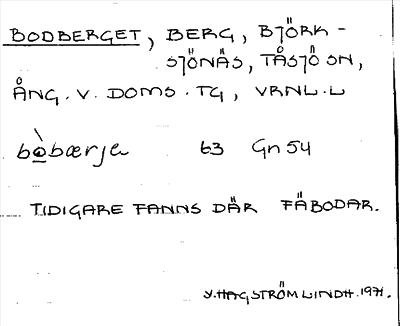 BODBERGET, BERG, BJÖRK-
SJÖNÄS, TÅSJÖ SN,
ÅNG. V. DOMS. TG, VRNL.L
bòbærje 63 Gn 54
TIDIGARE FANNS DÄR FÄBODAR.
Y. HAGSTRÖM LINDH. 1971.